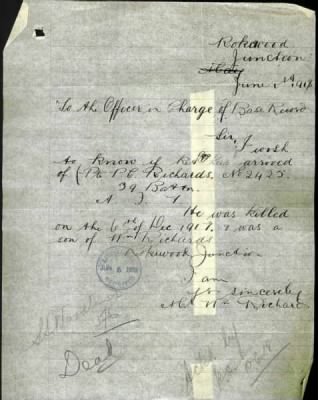 Rokewood
Junction
June 1st 1918
To the Officer in Charge of Base Record
Sir, I wish
to know if Kit has arrived
of (Pte P.C. Richards, No 2425.
39 Battn.
A I F
He was killed
on the 6th of Dec 1917. & was a
son of Wm Richards
Rokewood Junction
I am
yrs sincerely
Mrs Wm Richard
Dead